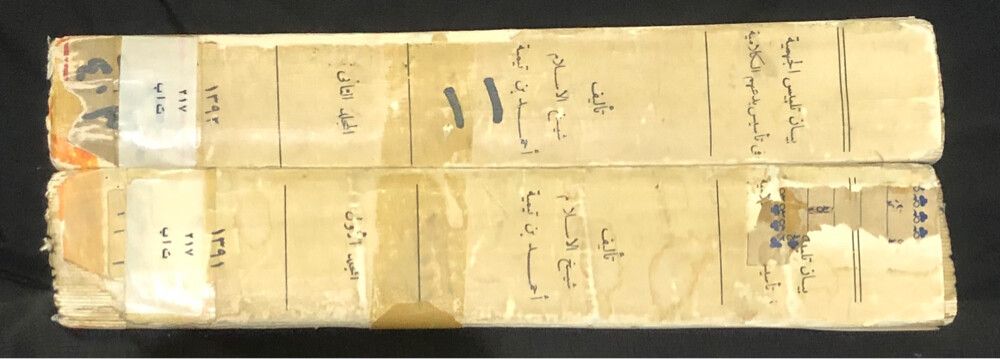 بيان تلبيس الجهمية
في تأسيس بدعهم الكلامية
تأليف
شيخ الاسلام
أحمد بن تيمية
المجلد الثاني
١٣٩٢
٢١٧
ت ا ب
بيان تلبيـ
تأليف
شيخ الاسلام
أحمد بن تيمية
المجلد الأول
١٣٩١
٢١٧
ت ا ب